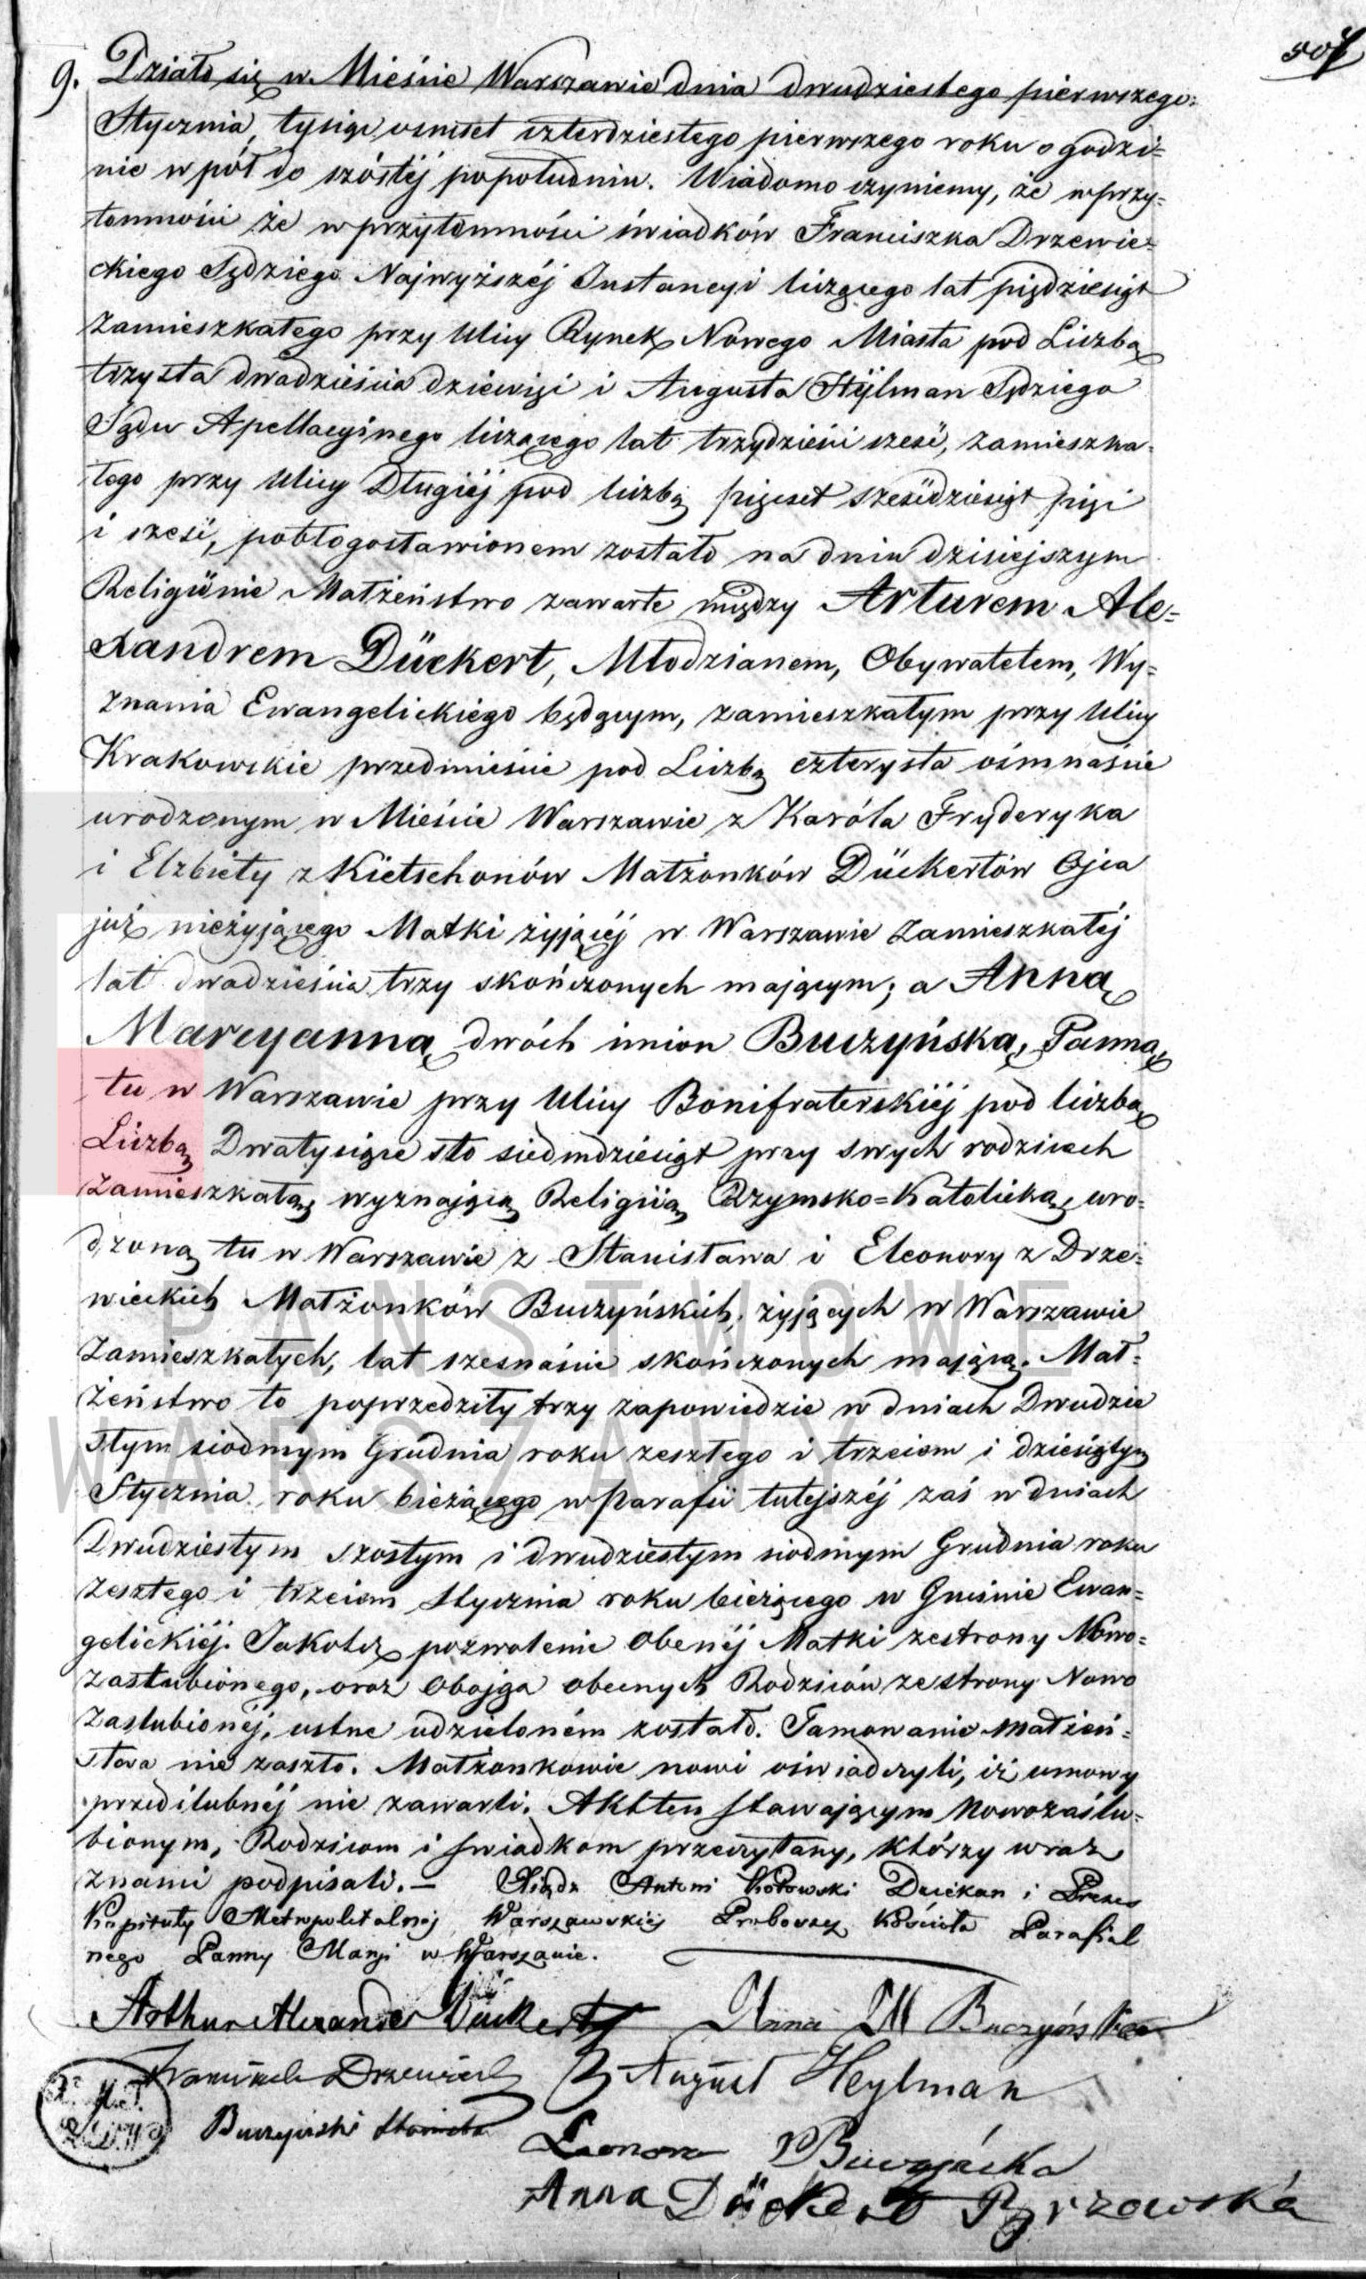 507
9. Działo się w Mieście Warszawie dnia dwudziestego pierwszego
Stycznia, tysiąc ośmset czterdziestego pierwszego roku o godzi=
nie w pół do szóstéj popołudniu. Wiadomo czyniemy, że w przy=
tomności że w przytomności świadków Franciszka Drzewie=
ckiego Sędziego Najwyższéj Instancyi liczącego lat piędziesiąt
zamieszkałego przy Ulicy Rynek Nowego Miasta pod Liczbą
trzysta dwadzieścia dziewięć i Augusta Heÿlman Sędziego
Sądu Apellacyinego liczącego lat trzydzieści sześć, zamieszka=
łego przy Ulicy Długiéj pod liczbą pięcset sześćdziesiąt pięć
i sześć, pobłogosławionem zostało na dniu dzisiejszym
Religiinie Małżeństwo zawarte między Arturem Ale=
xandrem Dückert, Młodzianem, Obywatelem, Wy=
znania Ewangelickiego będącym, zamieszkałym przy Ulicy
Krakowskie przedmieście pod Liczbą czterysta ośmnaście
urodzonym w Mieście Warszawie z Karóla Fryderyka
i Elzbiety z Kietschonów Małżonków Dückertów Ojca
już nieżyjącego Matki żyjącéj w Warszawie zamieszkałéj
lat dwadzieścia trzy skończonych mającym; a Anną
Maryanną dwóch imion Buczyńską, Panną,
tu w Warszawie przy Ulicy Bonifraterskiéj pod liczbą
Liczbą Dwatysiące sto siedmdziesiąt przy swych rodzicach
zamieszkałą, wyznającą Religiią Rzymsko=Katolicką, uro=
dzoną tu w Warszawie z Stanisława i Eleonory z Drze=
wieckich Małżonków Buczyńskich, żyjących w Warszawie
zamieszkałych, lat szesnaście skończonych mającą. Mał=
żeństwo to poprzedziły trzy zapowiedzie w dniach Dwudzie
stym siodmym Grudnia roku zeszłego i trzeciem i dziesiątym
Stycznia roku bieżącego w Parafii tutejszéj zaś w dniach
Dwudziestym szostym i dwudziestym siodmym Grudnia roku
zeszłego i trzeciem Stycznia roku bieżącego w Gminie Ewan=
gelickiéj. Jakoteż pozwolenie obecnéj Matki zestrony Nowo=
zaślubionego, oraz Obojga obecnych Rodziców ze strony Nowo
zaslubionéj, ustne udzieloném zostało. Tamowanie małżeń=
stwa nie zaszło. Małżonkowie nowi oświadczyli, iż umowy
przedślubnéj nie zawarli. Akt ten stawającym Nowozaślu=
bionym, Rodzicom i świadkom przeczytany, którzy wraz
znami podpisali.— Xiądz Antoni Kotowski Dziekan i Prezes
Kapituły Metropolitalnéj Warszawskiéj Proboszcz Kościoła Parafial
nego Panny Maryi w Warszawie.
Arthur Alexander Dückert Anna M Buczyńska
Franciszek Drzewiecki August Heylman
Buczyński Stanisław
Leonora Buczyńska
Anna Dückert
PAŃSTWOWE
WARSZAWY